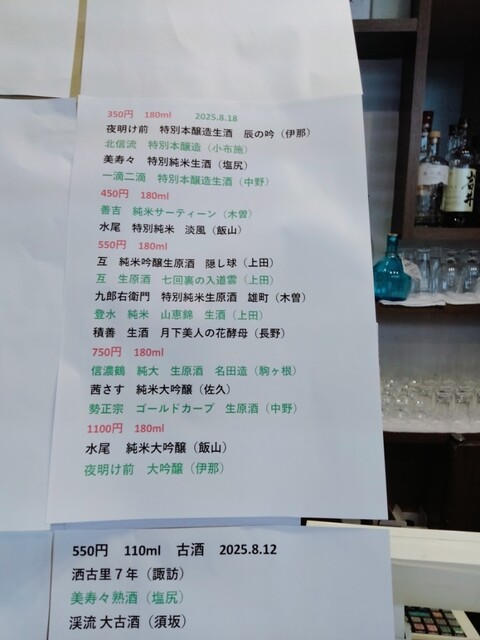 350円 180ml 2025.8.18
夜明け前 特別本醸造生酒 辰の吟（伊那）
北信流 特別本醸造（小布施）
美寿々 特別純米生酒（塩尻）
一滴二滴 特別本醸造生酒（中野）
450円 180ml
善吉 純米サーティーン（木曽）
水尾 特別純米 淡風（飯山）
550円 180ml
互 純米吟醸生原酒 隠し球（上田）
互 生原酒 七回裏の入道雲（上田）
九郎右衛門 特別純米生原酒 雄町（木曽）
登水 純米 山恵錦 生酒（上田）
積善 生酒 月下美人の花酵母（長野）
750円 180ml
信濃鶴 純大 生原酒 名田造（駒ヶ根）
茜さす 純米大吟醸（佐久）
勢正宗 ゴールドカープ 生原酒（中野）
1100円 180ml
水尾 純米大吟醸（飯山）
夜明け前 大吟醸（伊那）
550円 110ml 古酒 2025.8.12
洒古里７年（諏訪）
美寿々熟酒（塩尻）
渓流 大古酒（須坂）